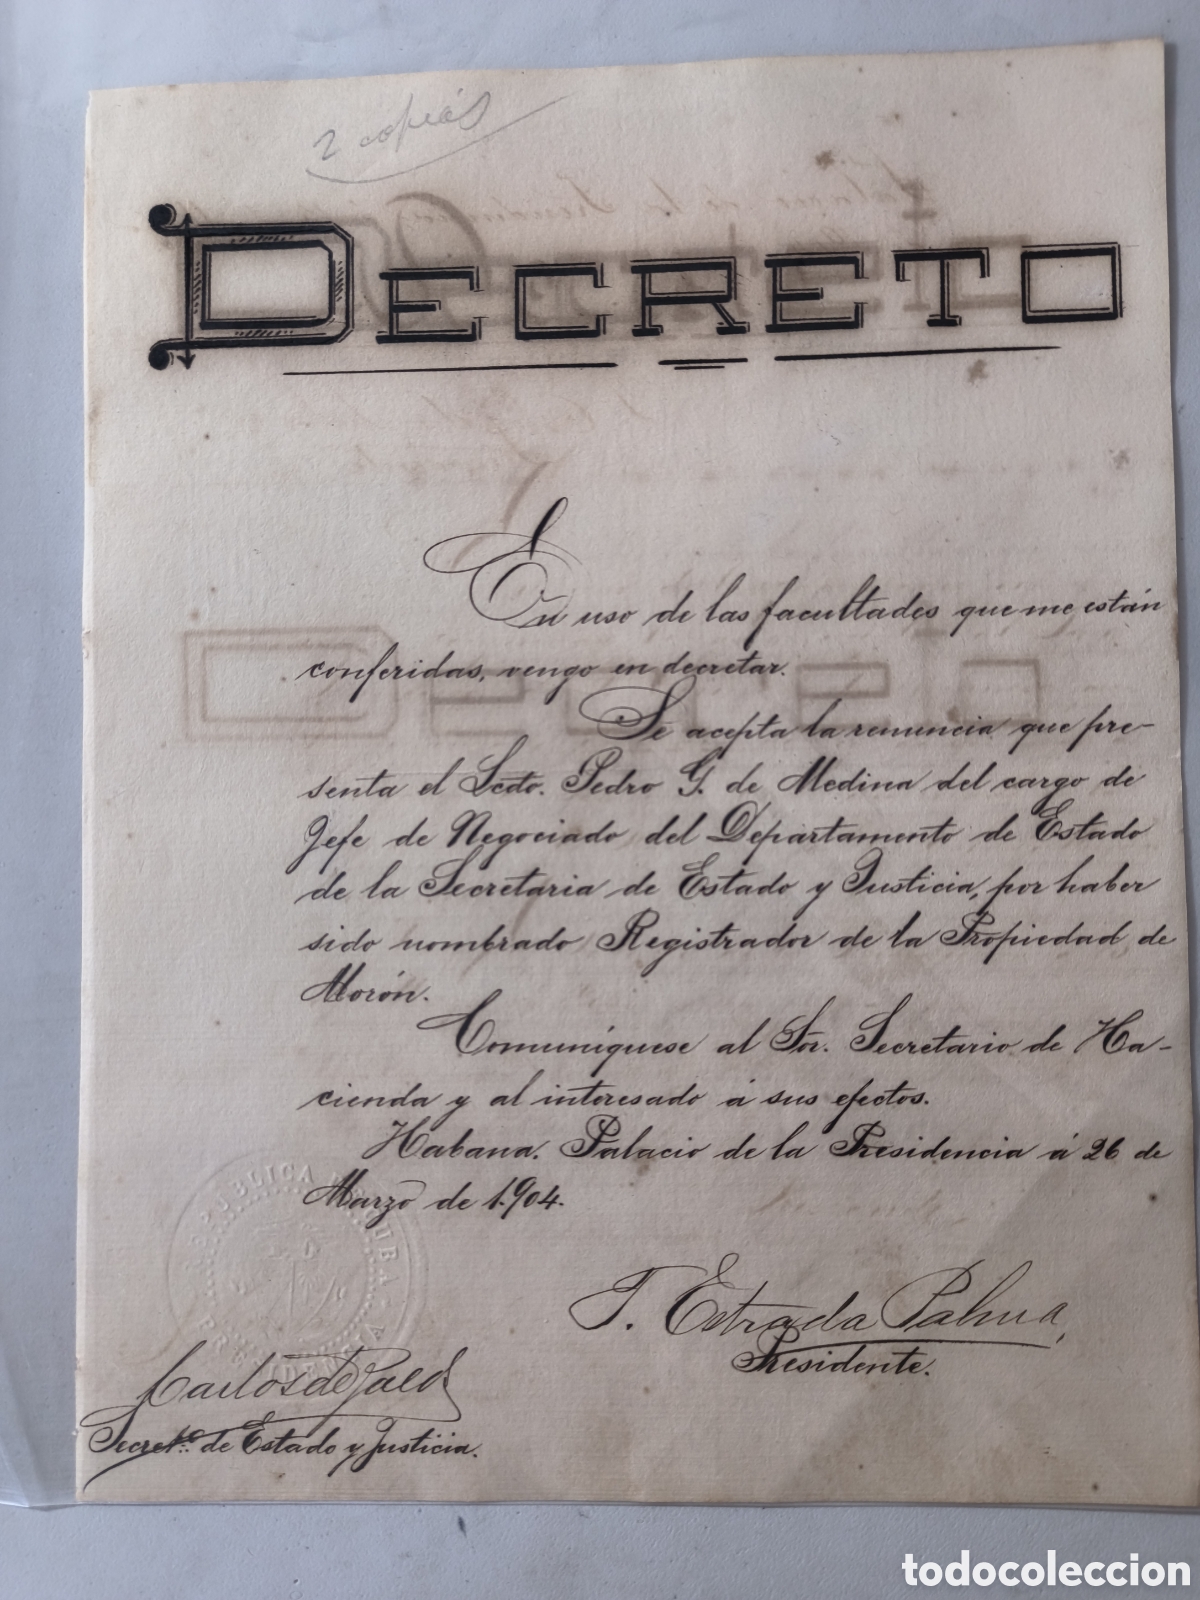 2 copias
DECRETO
En uso de las facultades que me están
conferidas, vengo en decretar.
Se acepta la renuncia que pre-
senta el Lcdo. Pedro G. de Medina del cargo de
Jefe de Negociado del Departamento de Estado
de la Secretaria de Estado y Justicia, por haber
sido nombrado Registrador de la Propiedad de
Morón.
Comuníquese al Sor. Secretario de Ha-
cienda y al interesado á sus efectos.
Habana. Palacio de la Presidencia á 26 de
Marzo de 1.904.
REPUBLICA DE CUBA
T. Estrada Palma,
Presidente.
Carlos de Zaldo
Secreto. de Estado y Justicia.
todocoleccion